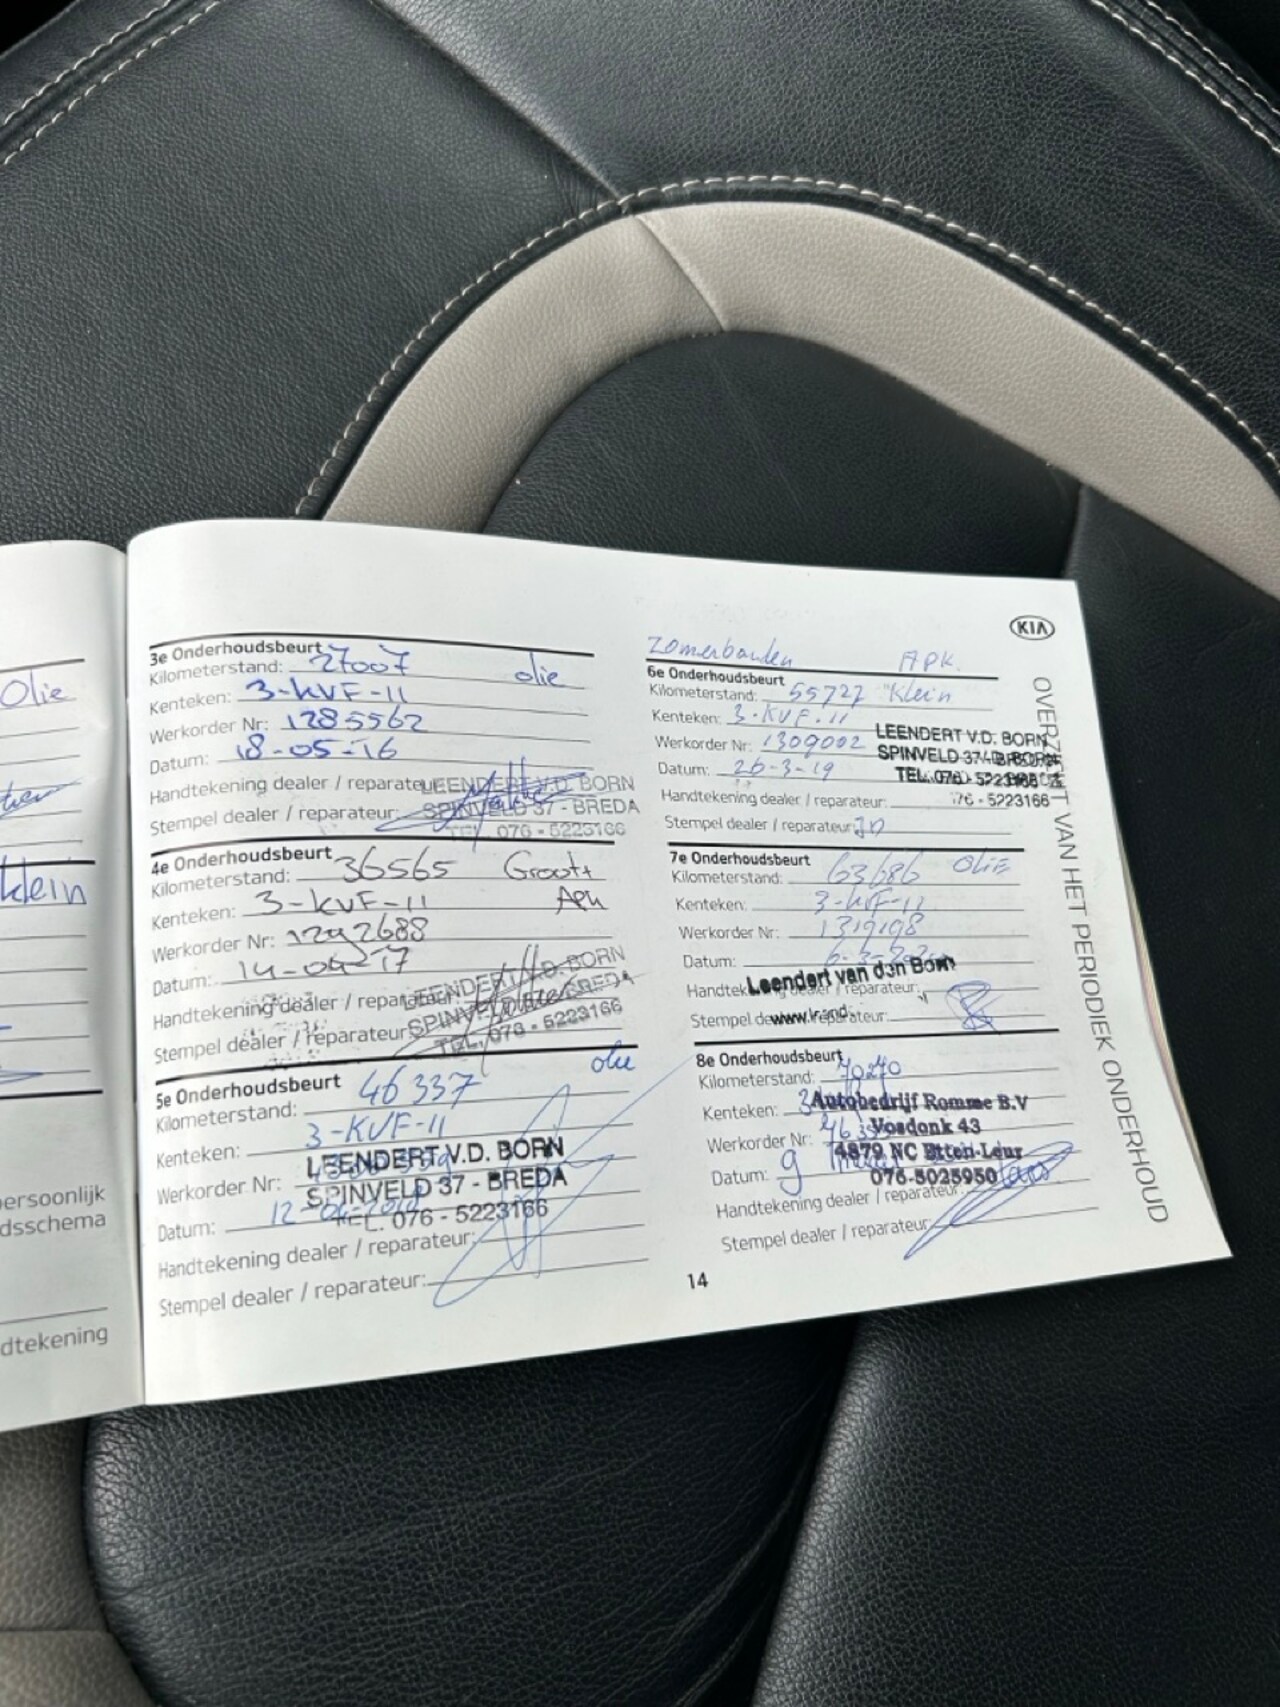 Olie
klein
ersoonlijk
dsschema
dtekening
3e Onderhoudsbeurt
Kilometerstand: 27007 olie
Kenteken: 3-KVF-11
Werkorder Nr: 1285562
Datum: 18-05-16
Handtekening dealer / reparateur
LEENDERT V.D. BORN
Stempel dealer / reparateur:
SPINVELD 37 - BREDA
TEL. 076 - 5223166
4e Onderhoudsbeurt
Kilometerstand: 36565 Groot+
Kenteken: 3-KVF-11 Apk
Werkorder Nr: 1292688
Datum: 14-04-17
Handtekening dealer / reparateur
LEENDERT V.D. BORN
Stempel dealer / reparateur:
SPINVELD 37 - BREDA
TEL. 076 - 5223166
5e Onderhoudsbeurt olie
Kilometerstand: 46337
Kenteken: 3-KVF-11
LEENDERT V.D. BORN
Werkorder Nr:
SPINVELD 37 - BREDA
Datum: 12-04-2018
TEL. 076 - 5223166
Handtekening dealer / reparateur:
Stempel dealer / reparateur:
KIA
Zomerbanden APK.
6e Onderhoudsbeurt
Kilometerstand: 55727 "Klein
Kenteken: 3-KVF-11
Werkorder Nr: 1309002
LEENDERT V.D. BORN
SPINVELD 37
Datum: 26-3-19
TEL. 076 - 5223166
Handtekening dealer / reparateur:
76 - 5223166
Stempel dealer / reparateur:
7e Onderhoudsbeurt
Kilometerstand: 63686 OLIE
Kenteken: 3-KVF-11
Werkorder Nr: 1319198
Datum: 6-3-2020
Leendert van den Born
Handtekening dealer / reparateur:
Stempel dealer / reparateur:
8e Onderhoudsbeurt
Kilometerstand: 70270
Kenteken: 3
Autobedrijf Romme B.V
Vosdonk 43
Werkorder Nr:
4879 NC Etten-Leur
Datum: 9
076-5025950
Handtekening dealer / reparateur:
Stempel dealer / reparateur:
14
OVERZICHT VAN HET PERIODIEK ONDERHOUD